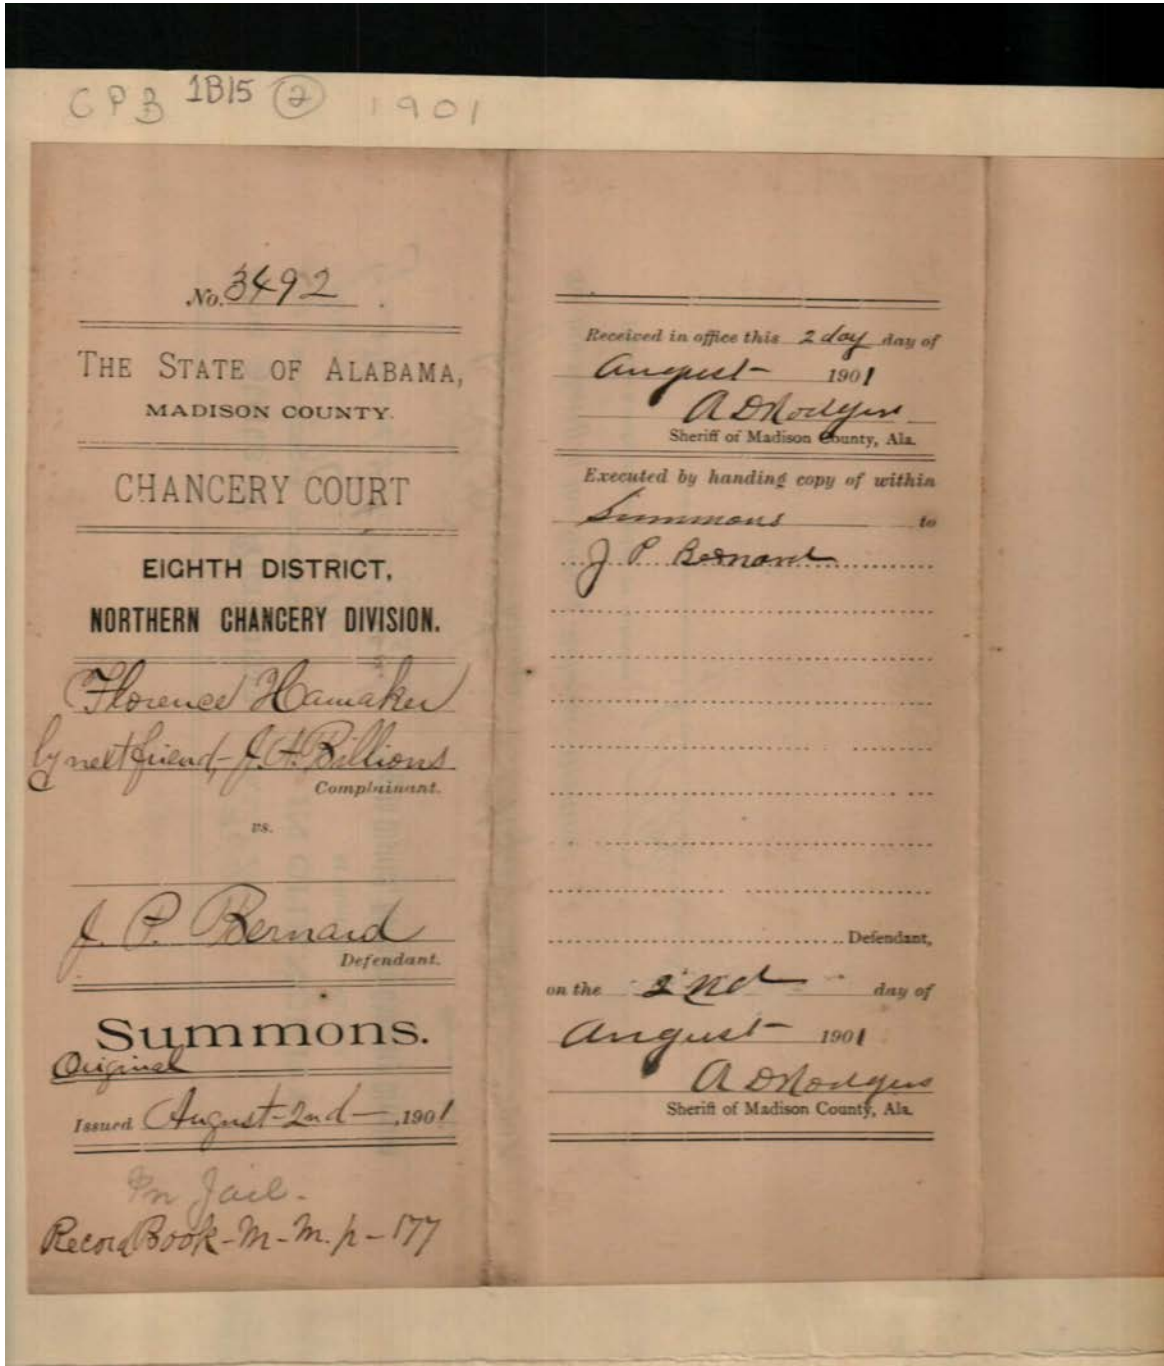 CPB 1B15 2 1901
No. 3492
THE STATE OF ALABAMA,
MADISON COUNTY.
CHANCERY COURT
EIGHTH DISTRICT,
NORTHERN CHANCERY DIVISION.
Florence Hamaker
by next friend - J. H. Billions
Complainant.
vs.
J. P. Bernard
Defendant.
Summons.
Original
Issued August - 2nd - , 1901
In Jail -
Record Book - M - M. p - 177
Received in office this 2 day day of
August - 1901
A D Rodgers
Sheriff of Madison County, Ala.
Executed by handing copy of within
Summons to
J P Bernard
Defendant,
on the 2nd day of
August - 1901
A D Rodgers
Sheriff of Madison County, Ala.